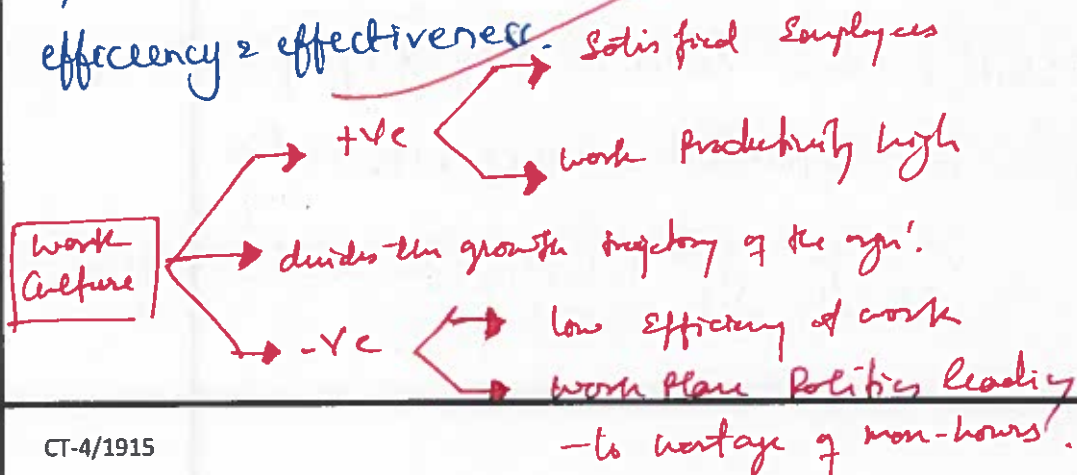 efficeency & effectiveness.
Satisfied Employees
+ve
work Productivity high
work
Culture
decides the growth trajectory of the orgn'.
-ve
low Efficiency of work
work place Politics leading
-to wastage of man-hours'.
CT-4/1915